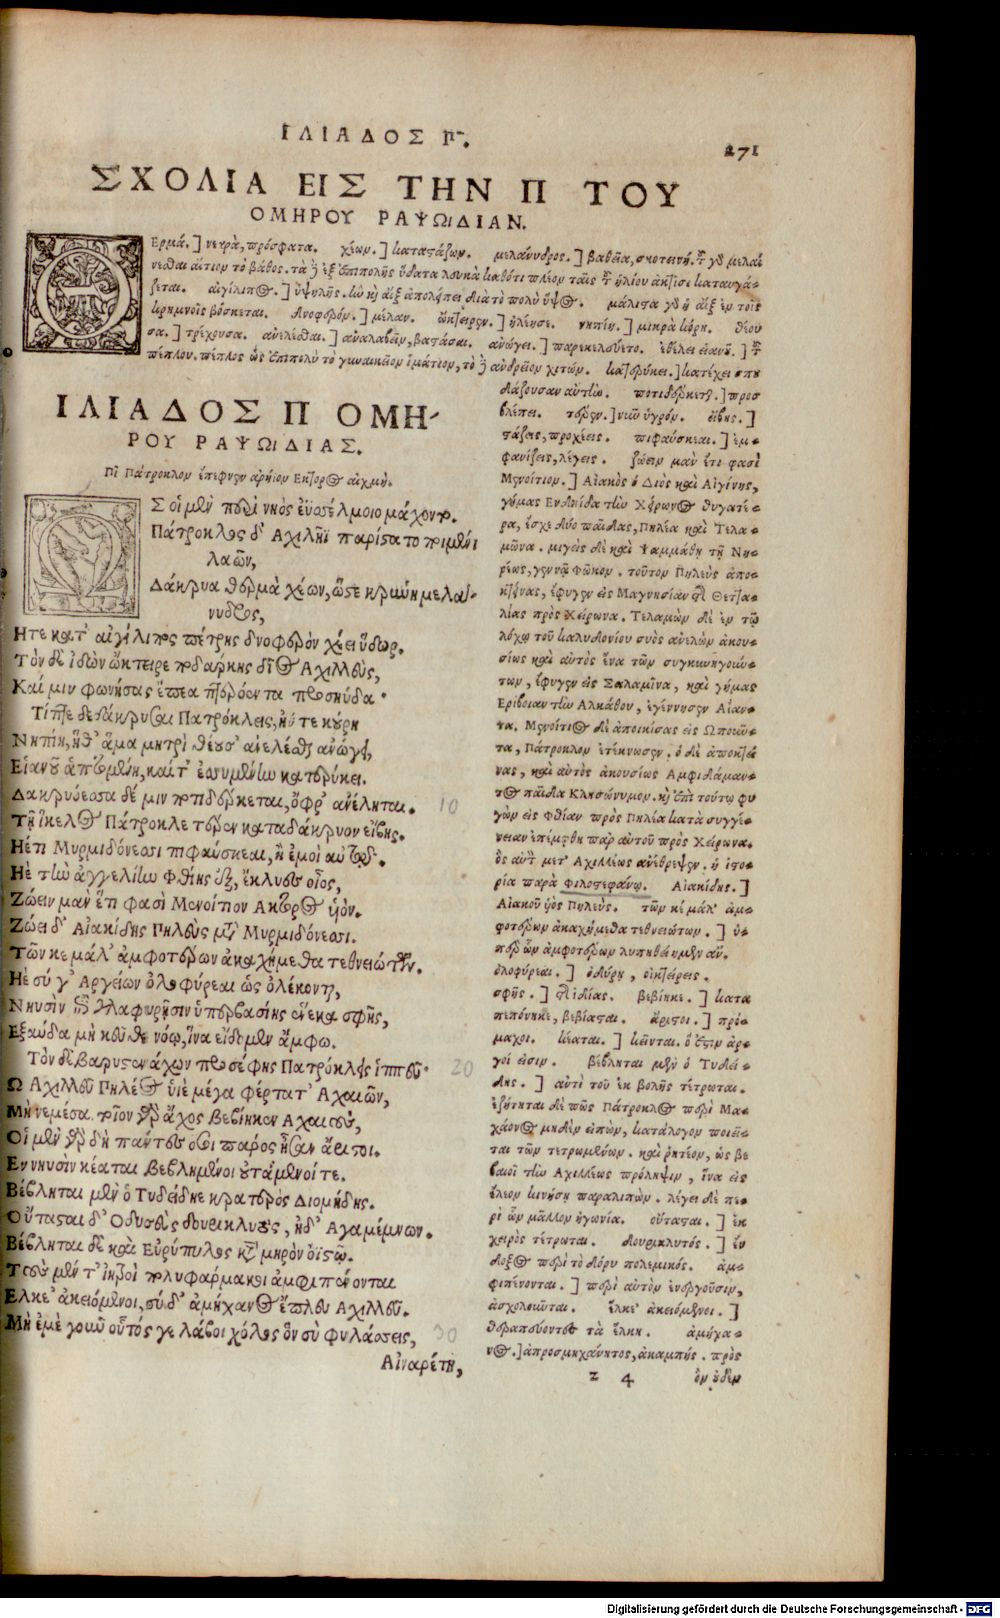 ΙΛΙΑΔΟΣ Π.
271
ΣΧΟΛΙΑ ΕΙΣ ΤΗΝ Π ΤΟΥ
ΟΜΗΡΟΥ ΡΑΨΩΙΔΙΑΝ.
Θερμά.] νεαρὰ, πρόσφατα. χέων.] καταστάζων. μελάνυδρος.] βαθεῖα, σκοτεινή. τοῦ γὰρ μελαί
νεσθαι αἴτιον τὸ βάθος. τὰ δ ἐξ ἐπιπολῆς ὕδατα λευκὰ καθότι πλέον ταῖς τοῦ ἡλίου ἀκτῖσι καταυγά-
ζεται. αἰγίλιπος.] ὑψηλῆς. ἣν κὴ αἲξ ἀπολείπει διὰ τὸ πολὺ ὕψος. μάλιστα γὰρ ἡ αἲξ ἐν τοῖς
κρημνοῖς βόσκεται. δνοφερόν.] μέλαν. ᾤκτειρεν.] ἠλέησε. νηπίη.] μικρὰ κόρη. θέου
σα.] τρέχουσα. ἀνελέσθαι.] ἀναλαβεῖν, βαστάσαι. ἀνώγει.] παρεκελεύετο. ἑθέλει εἱανοῦ.] τοῦ
πέπλου. πέπλος ὡς ἐπιπολὺ τὸ γυναικεῖον ἱμάτιον, τὸ δ ἀνδρεῖον χιτών. κατερύκει.] κατέχει σπου
δάζουσαν αὐτὴν. ποτιδέρκεται.] προσ
βλέπει. τέρεν.] νῦν ὑγρόν. εἴβεις.]
στάζεις, προχέεις. πιφαύσκεαι.] ἐμ-
φανίζεις, λέγεις. ζώειν μὰν ἔτι φασὶ
Μενοίτιον.] Αἰακὸς ὁ Διὸς καὶ Αἰγίνης,
γήμας Ενδηίδα τὴν Χείρωνος θυγατέ-
ρα, ἔσχε δύο παῖδας, Πηλέα καὶ Τελα-
μῶνα. μιγεὶς δὲ καὶ Ψαμμάθῃ τῇ Νη-
ρέως, γεννᾷ Φῶκον. τοῦτον Πηλεὺς ἀπο-
κτείνας, ἔφυγεν εἰς Μαγνησίαν τῆς Θετ]α-
λίας πρὸς Χείρωνα. Τελαμὼν δὲ ἐν τῷ
λόχῳ τοῦ καλυδονίου συὸς ἀνελὼν ἀκου-
σίως καὶ αὐτὸς ἕνα τῶν συγκυνηγούν-
των, ἔφυγεν εἰς Σαλαμῖνα, καὶ γήμας
Ερίβοιαν τὴν Αλκάθου, ἐγέννησεν Αἴαν-
τα. Μενοίτιος δὲ ἀποικίσας εἰς Ωποῦν-
τα, Πάτροκλον ἐτέκνωσεν. ὁ δὲ ἀποκτεί
νας, καὶ αὐτὸς ἀκουσίως Αμφιδάμαν-
τος παῖδα Κλησώνυμον. κὴ ἐπὶ τούτῳ φυ
γὼν εἰς Φθίαν πρὸς Πηλέα κατὰ συγγέ-
νειαν ἐπέμφθη παρ αὐτοῦ πρὸς Χείρωνα.
ὃς αὐτὸν μετ' Αχιλλέως ἀνέθρεψεν. ἡ ἱστο-
ρία παρὰ Φιλοστεφάνῳ. Αἰακίδης.]
Αἰακοῦ ὑὸς Πηλεύς. τῶν κέ μάλ' ἀμ-
φοτέρων ἀκαχήμεθα τεθνειώτων.] ὑ-
πὲρ ὧν ἀμφοτέρων λυπηθείημεν ἄν.
ὀλοφύρεαι.] ὀδύρῃ, οἰκτείρεις.
σφῆς.] τῆς ἰδίας. βεβίηκε.] κατα
πεπόνηκε, βεβίασται. ἄριστοι.] πρό-
μαχοι. κέαται.] κεῖνται. ὅ ἐστιν ἀρ-
γοί εἰσιν. βέβληται μὲν ὁ Τυδεί-
δης.] αὐτὶ τοῦ ἐκ βολῆς τέτρωται.
ἐζήτηται δὲ πῶς Πάτροκλος περὶ Μα-
χάονος μηδὲν εἰπὼν, κατάλογον ποιεῖ-
ται τῶν τετρωμένων. καὶ ῥητέον, ὡς βε
βαιοῖ τὴν Αχιλλέως πρόληψιν, ἵνα εἰς
ἔλεον κινήσῃ παραλιπὼν. λέγει δὲ πε-
ρὶ ὧν μᾶλλον ἠγωνία. οὔτασται.] ἐκ
χειρὸς τέτρωται. δουρικλυτός.] ἔν
δοξος περὶ τὸ δόρυ πολεμικός. ἀμ-
φιπένονται.] περὶ αὐτὸν ἐνεργοῦσιν,
ἀσχολοῦνται. ἕλκε' ἀκειόμενοι.]
θεραπεύοντες τὰ ἕλκη. ἀμήχα-
νος.] ἀπροσμηχάνητος, ἀκαμπής. πρὸς
z 4 ὃν οὐδὲν
ΙΛΙΑΔΟΣ Π ΟΜΗ-
ΡΟΥ ΡΑΨΩΙΔΙΑΣ.
Πῖ Πάτροκλον ἔπεφνεν ἀρήιον Εκτορος αἰχμή.
Ως οἱ μὲν περὶ νηὸς ἐϋσσέλμοιο μάχοντο.
Πάτροκλος δ' Αχιλῆϊ παρίστατο ποιμένι
λαῶν,
Δάκρυα θερμὰ χέων, ὥστε κρήνη μελάνυδρος,
Ητε κατ' αἰγίλιπος πέτρης δνοφερὸν χέει ὕδωρ.
Τὸν δὲ ἰδὼν ᾤκτειρε ποδάρκης δῖος Αχιλλεὺς,
Καί μιν φωνήσας ἔπεα πτερόεντα προσηύδα·
Τίπτε δεδάκρυσαι Πατρόκλεις, ἠΰτε κούρη
Νηπίη, ἥθ' ἅμα μητρὶ θέουσ' ἀνελέσθαι ἀνώγει,
Εἱανοῦ ἁπτομένη, καί τ' ἐσσυμένην κατερύκει.
Δακρυόεσσα δέ μιν ποτιδέρκεται, ὄφρ' ἀνέληται. 10
Τῇ ἴκελος Πάτροκλε τέρεν καταδάκρυον εἴβεις.
Ηέτι Μυρμιδόνεσσι πιφαύσκεαι, ἢ ἐμοὶ αὐτῷ.
Ηὲ τὴν ἀγγελίην Φθίης ἐξ, ἔκλυες οἶος,
Ζώειν μὰν ἔτι φασὶ Μενοίτιον Ακτορος ὑὸν.
Ζώει δ' Αἰακίδης Πηλεὺς μετὰ Μυρμιδόνεσσι.
Τῶν κε μάλ' ἀμφοτέρων ἀκαχήμεθα τεθνειώτων.
Ηὲ σύ γ' Αργείων ὀλοφύρεαι ὡς ὀλέκονται,
Νηυσὶν ἔπι γλαφυρῇσιν ὑπερβασίης ἕνεκα σφῆς,
Εξαύδα μὴ κεῦθε νόῳ, ἵνα εἴδομεν ἄμφω.
Τὸν δὲ βαρυστενάχων προσέφης Πατρόκλεις ἱππεῦ· 20
Ω Αχιλλεῦ Πηλέος ὑιὲ μέγα φέρτατ' Αχαιῶν,
Μὴ νεμέσα. τοῖον γὰρ ἄχος βεβίηκεν Αχαιοὺς,
Οἱ μὲν γὰρ δὴ πάντες ὅσοι πάρος ἦσαν ἄριστοι.
Εν νηυσὶν κέαται βεβλημένοι οὐτάμενοί τε.
Βέβληται μὲν ὁ Τυδείδης κρατερὸς Διομήδης.
Οὔτασται δ' Οδυσεὺς δουρικλυτὸς, ἠδ' Αγαμέμνων.
Βέβληται δὲ καὶ Εὐρύπυλος κατὰ μηρὸν ὀϊστῷ.
Τοὺς μέν τ' ἰητροὶ πολυφάρμακοι ἀμφιπένονται
Ελκε' ἀκειόμενοι, σὺ δ' ἀμήχανος ἔπλευ Αχιλλεῦ.
Μὴ ἐμὲ γοῦν οὗτός γε λάβοι χόλος ὃν σὺ φυλάσσεις, 30
Αἰναρέτη,
Digitalisierung gefördert durch die Deutsche Forschungsgemeinschaft - DFG